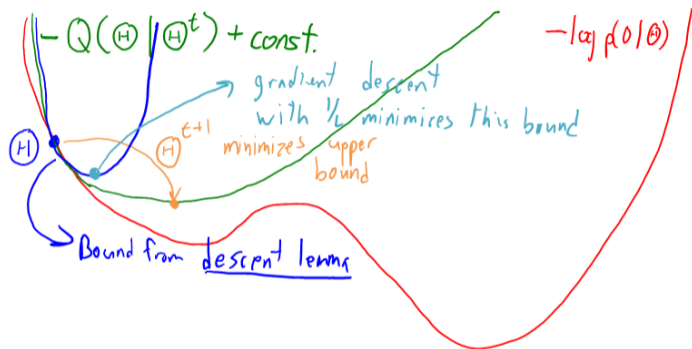 -Q(Θ|Θ^t) + const.
-log p(O|Θ)
gradient descent
with 1/L minimizes this bound
Θ
Θ^{t+1}
minimizes upper
bound
Bound from descent lemma